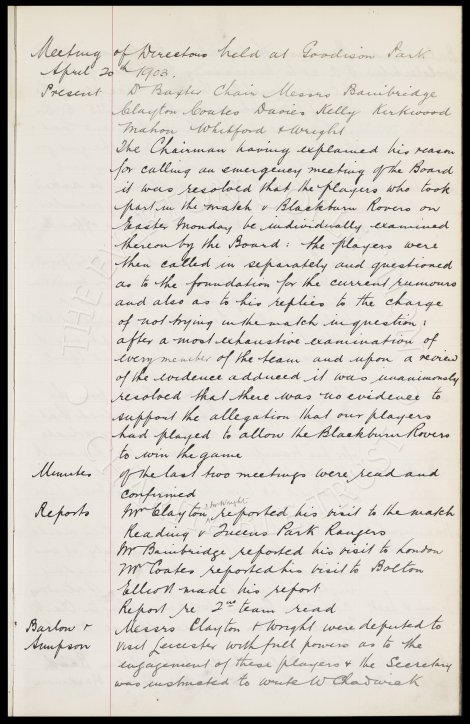 Meeting of Directors held at Goodison Park
April 20th 1903.
Present Dr Baxter Chair Messrs Bainbridge
Clayton Coates Davies Kelly Kirkwood
Mahon Whitford & Wright
The Chairman having explained his reason
for calling an emergency meeting of the Board
it was resolved that the players who took
part in the match v Blackburn Rovers on
Easter Monday be individually examined
thereon by the Board: the players were
then called in separately and questioned
as to the foundation for the current rumours
and also as to his replies to the charge
of not trying in the match in question:
after a most exhaustive examination of
every member of the team and upon a review
of the evidence adduced it was unanimously
resolved that there was no evidence to
support the allegation that our players
had played to allow the Blackburn Rovers
to win the game
Minutes of the last two meetings were read and
confirmed
Reports Mr Clayton & Mr Wright reported his visit to the match
Reading v Queens Park Rangers
Mr Bainbridge reported his visit to London
Mr Coates reported his visit to Bolton
Elliott made his report
Report re 2nd team read
Barlow & Messrs Clayton & Wright were deputed to
Simpson visit Leicester with full powers as to the
engagement of these players & the Secretary
was instructed to write W Chadwick